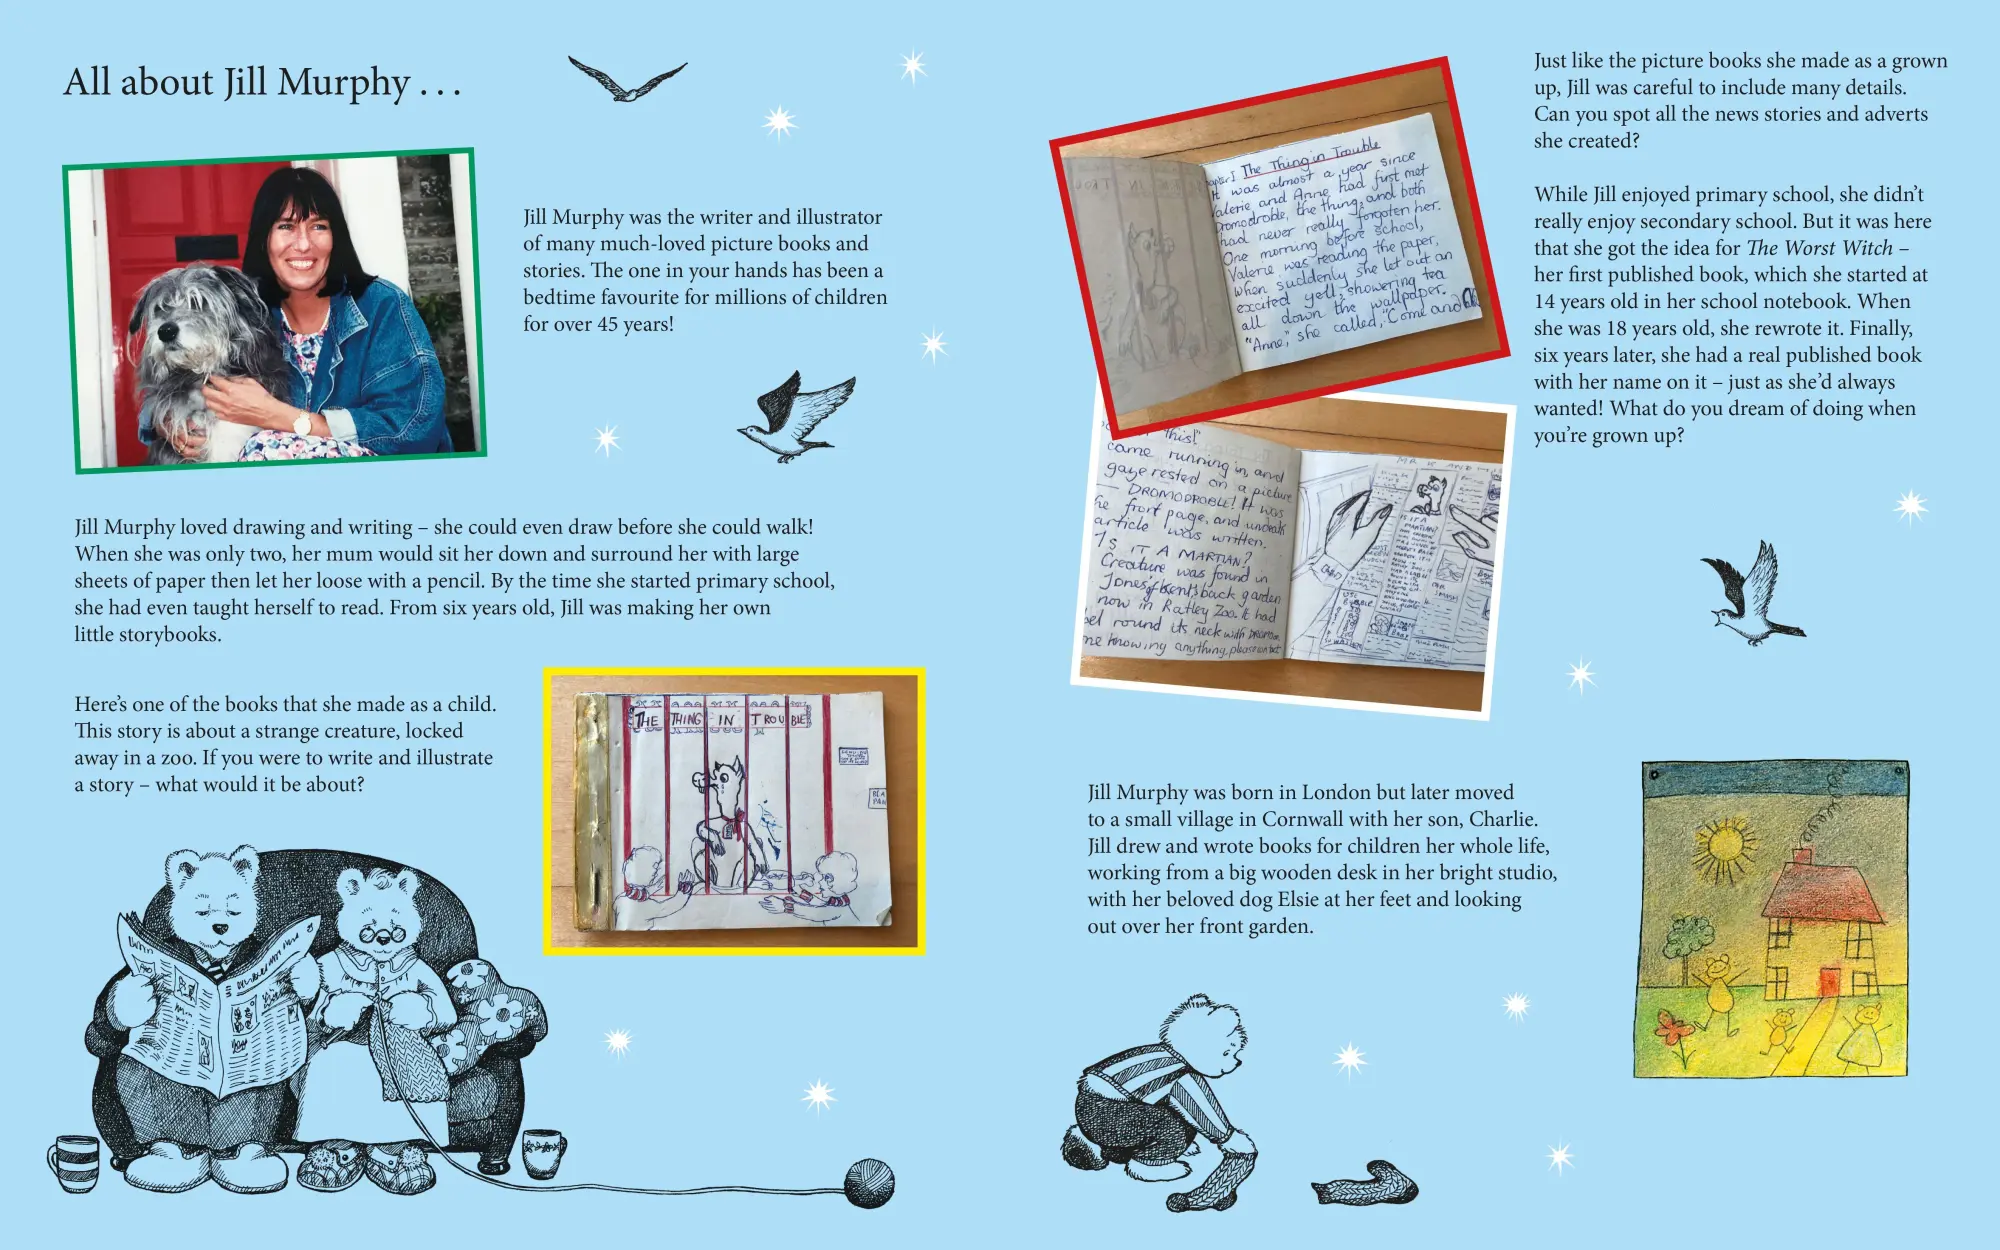 All about Jill Murphy . . .
Jill Murphy was the writer and illustrator
of many much-loved picture books and
stories. The one in your hands has been a
bedtime favourite for millions of children
for over 45 years!
Jill Murphy loved drawing and writing – she could even draw before she could walk!
When she was only two, her mum would sit her down and surround her with large
sheets of paper then let her loose with a pencil. By the time she started primary school,
she had even taught herself to read. From six years old, Jill was making her own
little storybooks.
Here’s one of the books that she made as a child.
This story is about a strange creature, locked
away in a zoo. If you were to write and illustrate
a story – what would it be about?
THE THING IN TROUBLE
I The Thing in Trouble
It was almost a year since
Valerie and Anne had first met
Dromodroble, the thing, and both
had never really forgoten her.
One morning before school,
Valerie was reading the paper,
when suddenly she let out an
excited yell, showering tea
all down the wallpaper.
"Anne," she called, "Come and
this!"
came running in, and
gaze rested on a picture
— DROMODROBLE! It was
front page, and
article was written.
IS IT A MARTIAN?
Creature was found in
Jones' back garden
now in Ratley Zoo. It had
round its neck with
knowing anything, please
IS IT A
MARTIAN?
Just like the picture books she made as a grown
up, Jill was careful to include many details.
Can you spot all the news stories and adverts
she created?
While Jill enjoyed primary school, she didn’t
really enjoy secondary school. But it was here
that she got the idea for The Worst Witch –
her first published book, which she started at
14 years old in her school notebook. When
she was 18 years old, she rewrote it. Finally,
six years later, she had a real published book
with her name on it – just as she’d always
wanted! What do you dream of doing when
you’re grown up?
Jill Murphy was born in London but later moved
to a small village in Cornwall with her son, Charlie.
Jill drew and wrote books for children her whole life,
working from a big wooden desk in her bright studio,
with her beloved dog Elsie at her feet and looking
out over her front garden.